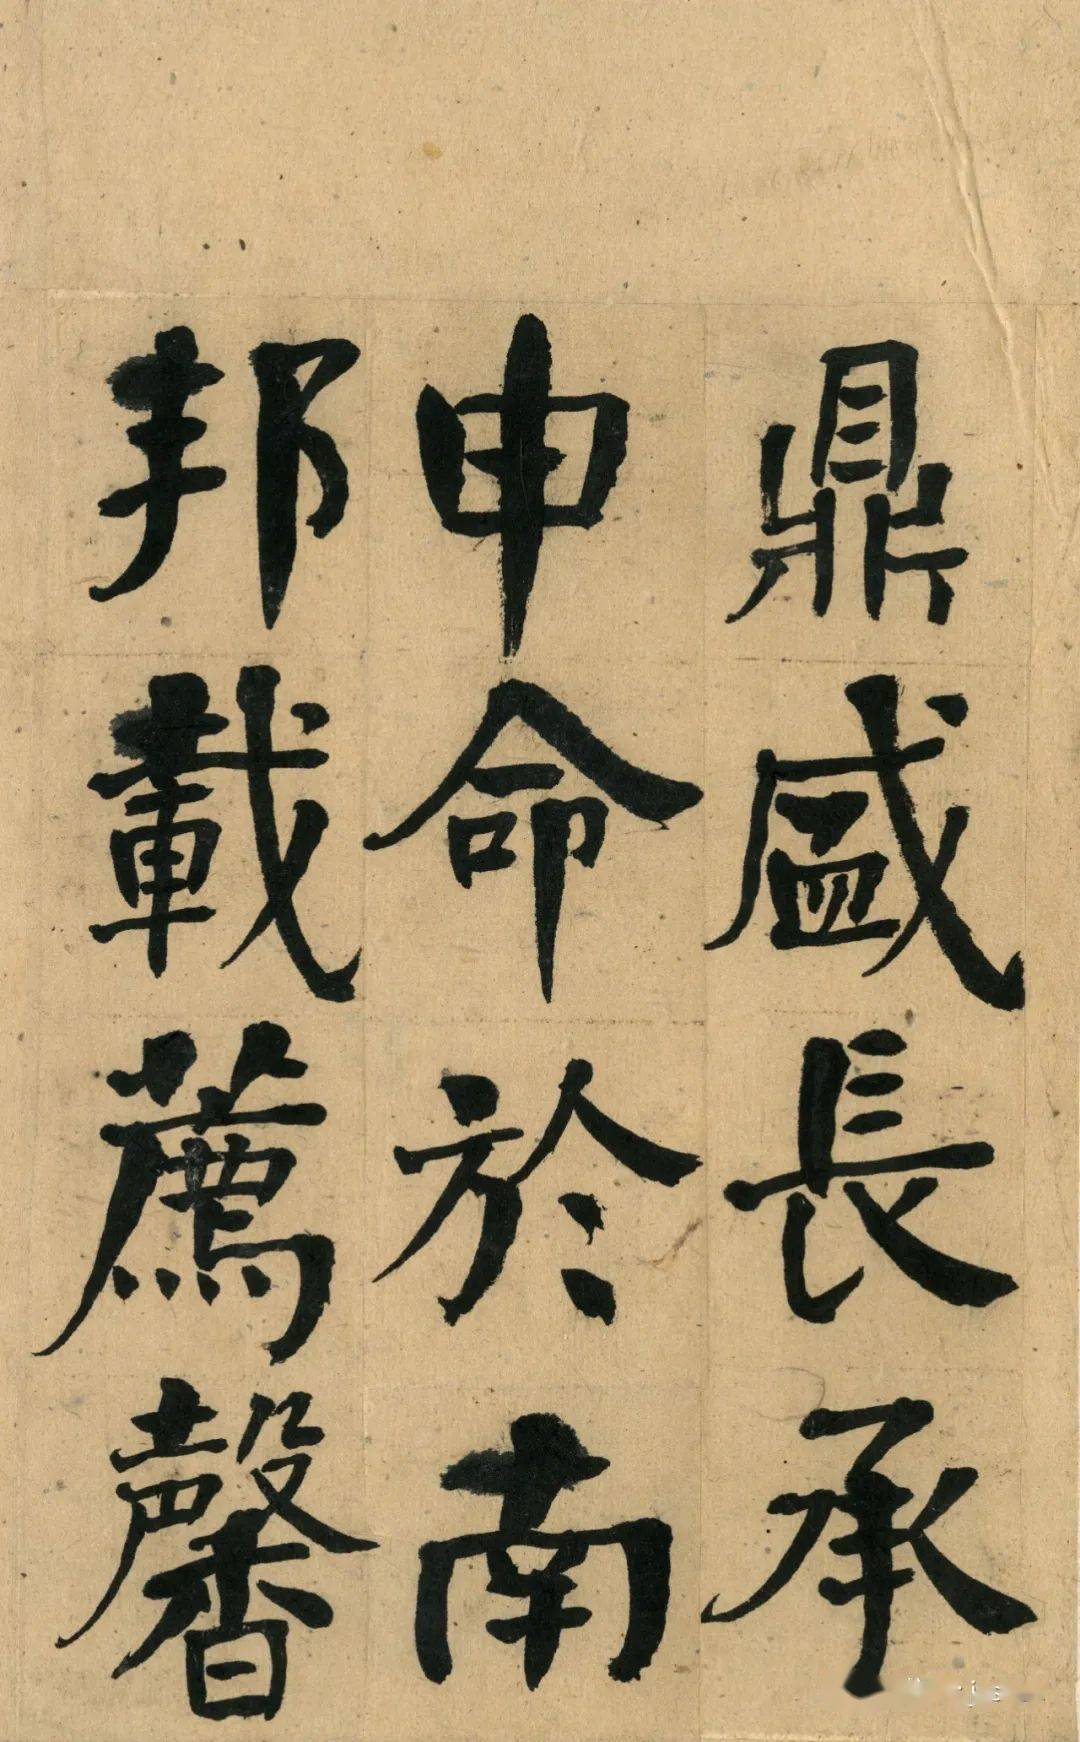 鼎盛長承
申命於南
邦載薦馨